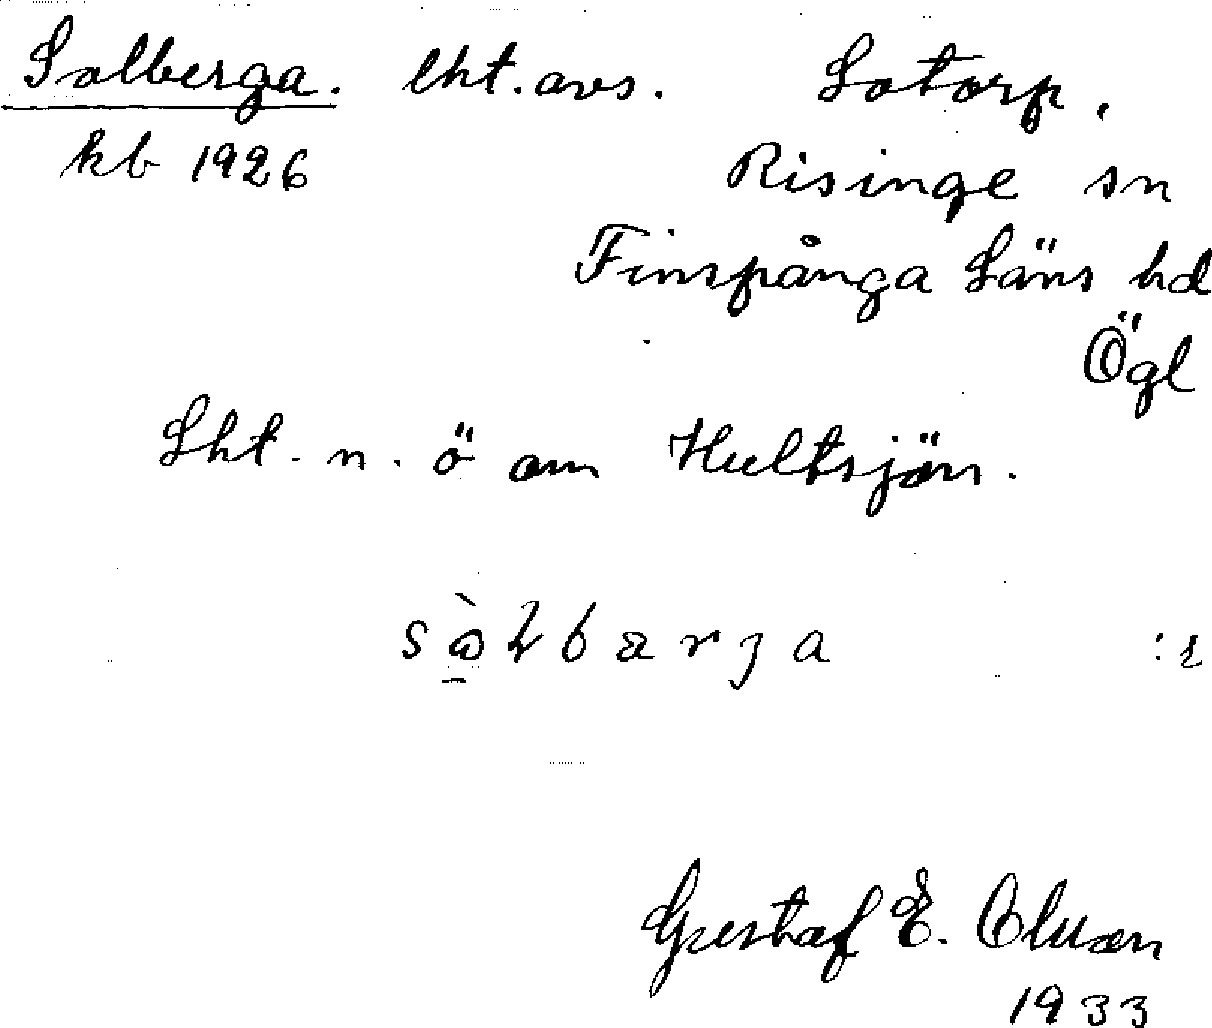 Solberga. lht. avs. Lotorp,
kb 1926 Risinge sn
Finspånga Läns hd
Ögl
Lht. n. ö om Hultsjön.
:
Gustaf E.
1933